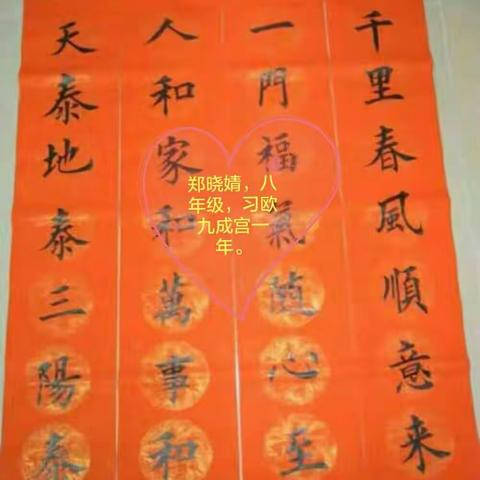 千里春風順意来
一門福氣隨心至
人和家和萬事和
天泰地泰三陽泰
郑晓婧，八
年级，习欧
九成宫一
年。